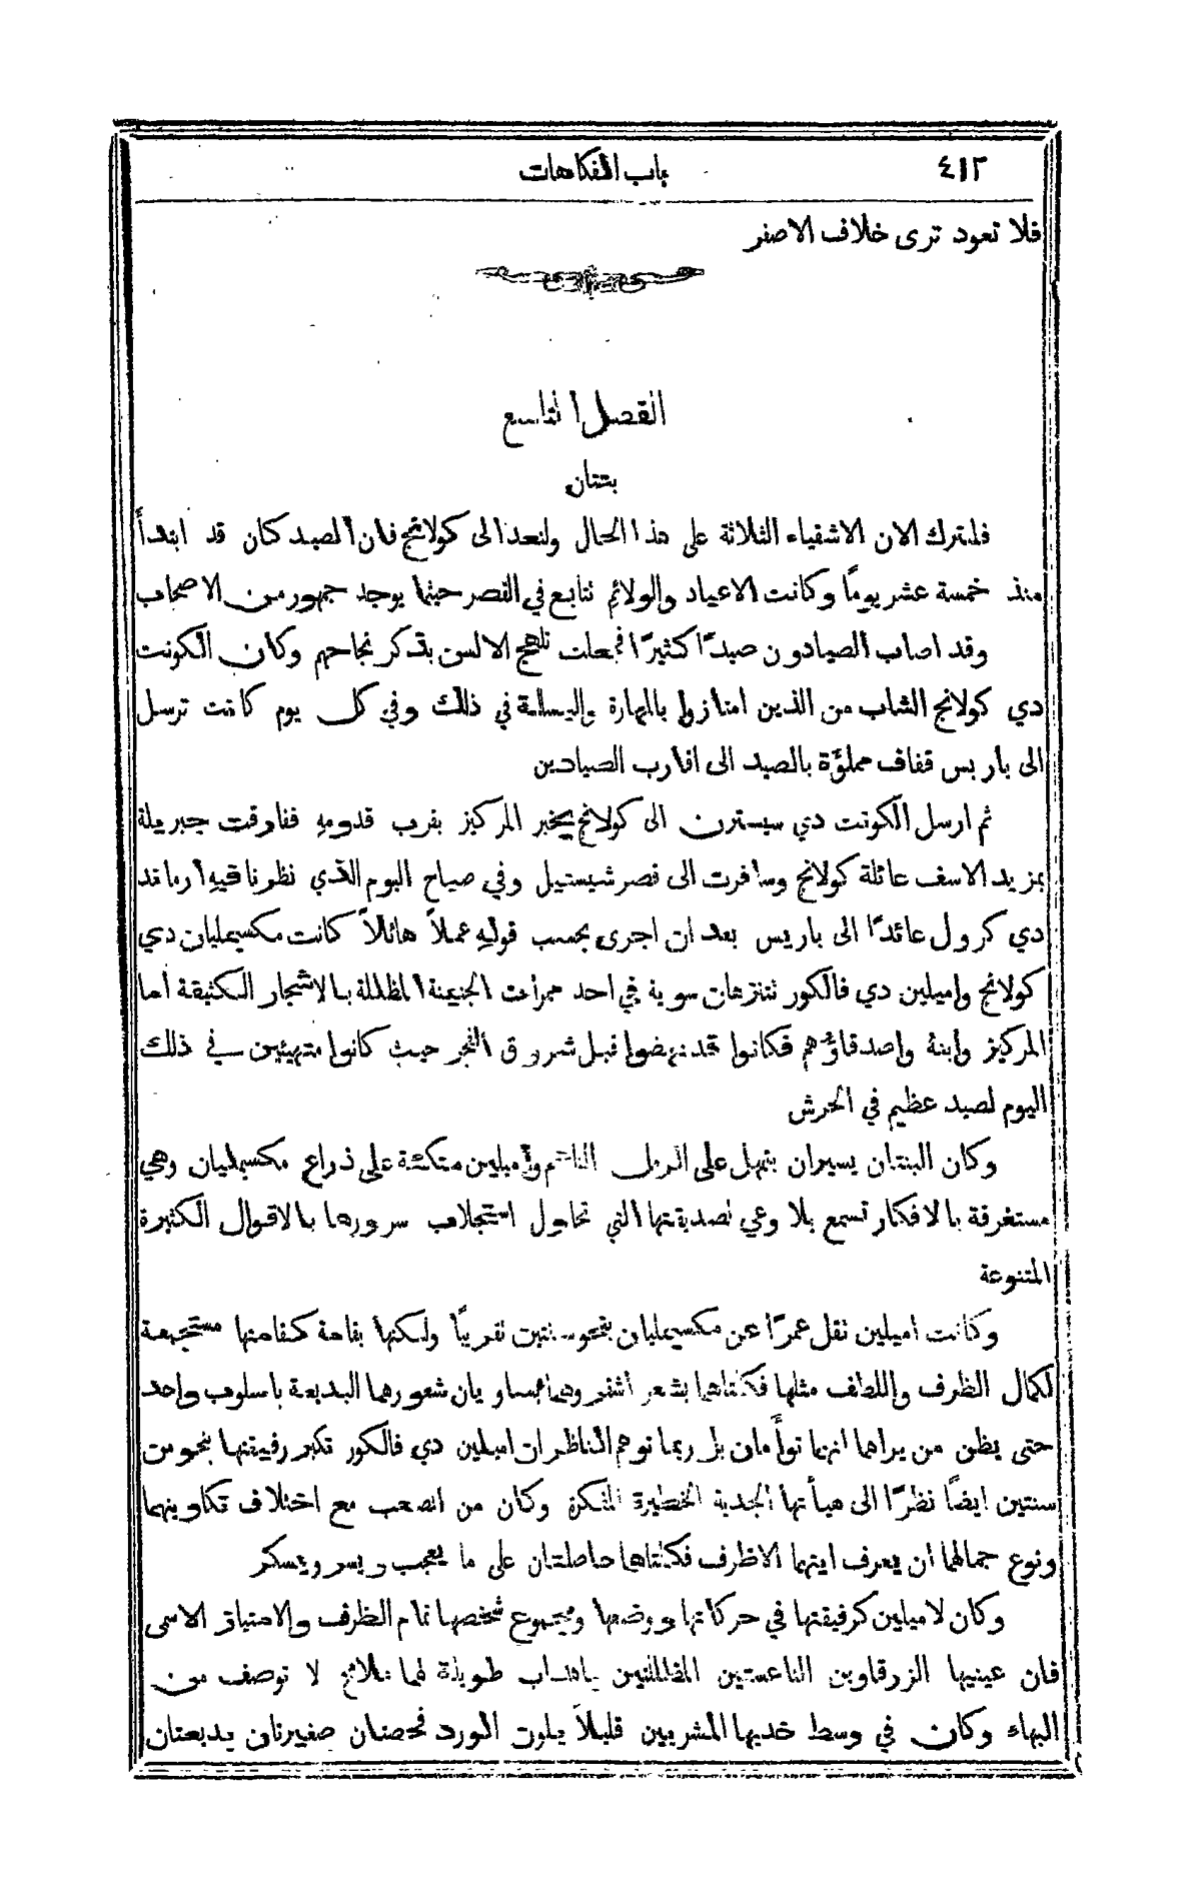 ٤١٢
باب الفكاهات
فلا تعود ترى خلاف الاصفر
الفصل التاسع
بنتان
فلنترك الان الاشقياء الثلاثة على هذا الحال ولنعد الى كولانج فان الصيد كان قد ابتدأ
منذ خمسة عشر يومًا وكانت الاعياد والولائم تتابع في القصر حيثما يوجد جمهور من الاصحاب
وقد اصاب الصيادون صيدًا كثيرًا فجعلت تلهج الالسن بذكر نجاحهم وكان الكونت
دي كولانج الشاب من الذين امتازوا بالمهارة والبسالة في ذلك وفي كل يوم كانت ترسل
الى باريس قفاف مملؤة بالصيد الى اقارب الصيادين
ثم ارسل الكونت دي سيسترن الى كولانج يخبر المركيز بقرب قدومهِ ففارقت جبريلة
بمزيد الاسف عائلة كولانج وسافرت الى قصر شيستيل وفي صباح اليوم الذي نظرنا فيهِ ارماند
دي كرول عائدًا الى باريس بعد ان اجرى بحسب قولهِ عملاً هائلاً كانت مكسيمليان دي
كولانج واميلين دي فالكور تتنزهان سوية في احد ممرات الجنينة المظللة بالاشجار الكثيفة اما
المركيز وابنهُ واصدقاؤهم فكانوا قد نهضوا قبل شروق الفجر حيث كانوا متهيئين في ذلك
اليوم لصيد عظيم في الحرش
وكان البنتان يسيران بتمهل على الرمل الناعم واميلين متكئة على ذراع مكسيمليان وهي
مستغرقة بالافكار تسمع بلا وعي لصديقتها التي تحاول استجلاب سرورها بالاقوال الكثيرة
المتنوعة
وكانت اميلين تقل عمرًا عن مكسيمليان بنحو سنتين تقريبًا ولكنها بقامة كقامتها مستجمعة
لكمال الظرف واللطف مثلها فكلتاهما بشعر اشقر وهما متساويان شعورهما البديعة باسلوب واحد
حتى يظن من يراهما انهما توأمان بل ربما توهم الناظر ان اميلين دي فالكور تكبر رفيقتها بنحو من
سنتين ايضًا نظرًا الى هيأتها الجدية الخطيرة المفكرة وكان من الصعب مع اختلاف تكاوينهما
ونوع جمالهما ان يعرف ايتهما الاظرف فكلتاهما حاصلتان على ما يعجب ويسر ويسكر
وكان لاميلين كرفيقتها في حركاتها ووضعها ومجموع شخصها تمام الظرف والامتياز الاسمى
فان عينيها الزرقاوين الناعستين المظللتين باهداب طويلة لهما ملامح لا توصف من
البهاء وكان في وسط خديها المشربين قليلاً بلون الورد فحصتان صغيرتان بديعتان